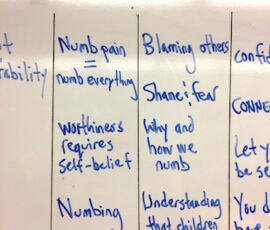 t
ability
Numb pain
=
numb everything
worthiness
requires
self-belief
Numbing
Blaming others
Shame & fear
Why and
how we
numb
Understanding
that children
confid
CONNE
Let y
be se
You d